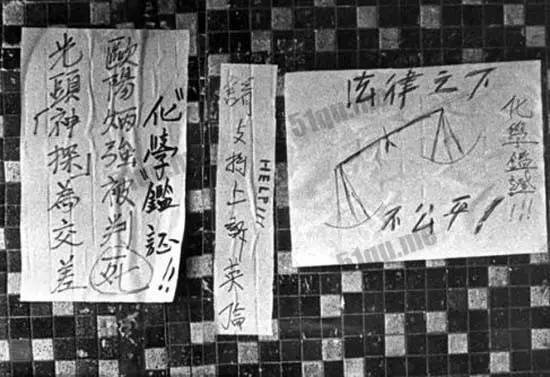 "化學"鑑証!!
歐陽炳強被判死
光頭「神探」為交差
HELP!!!
請支持上訴英倫
法律之下
不公平!
化學鑑證!!!
51qu.me
51qu.me
51qu.me